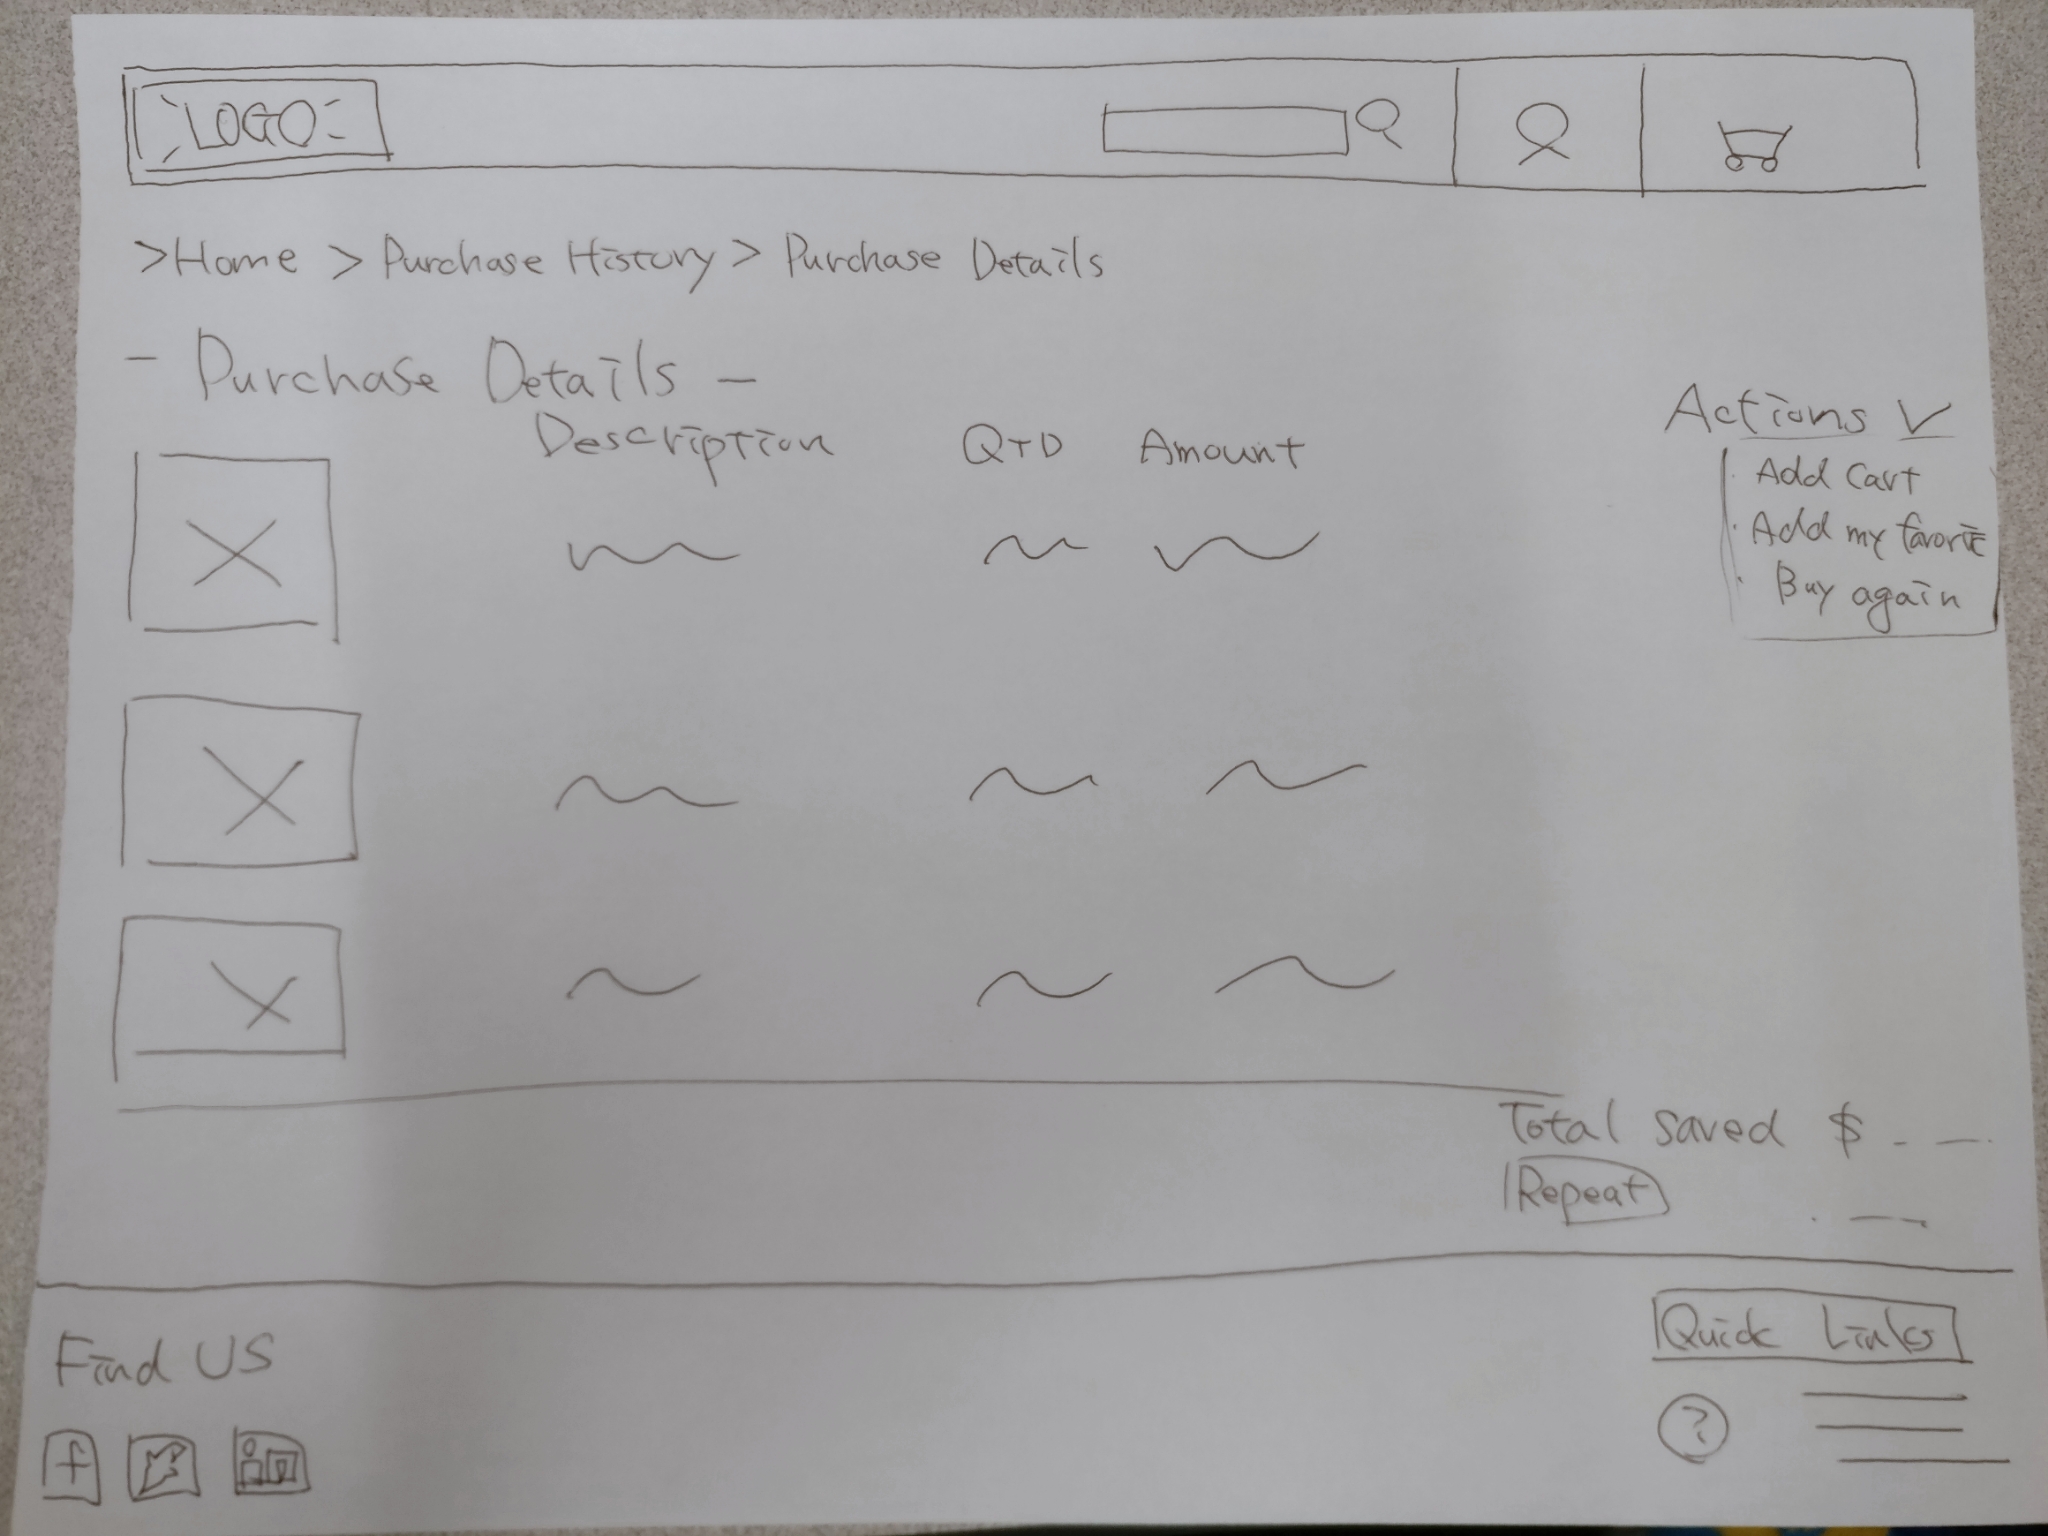 LOGO
>Home > Purchase History > Purchase Details
- Purchase Details -
Description QTD Amount
Actions
Add Cart
Add my favorite
Buy again
Total saved $ - —
Repeat
Find US
Quick Links
f
in
?